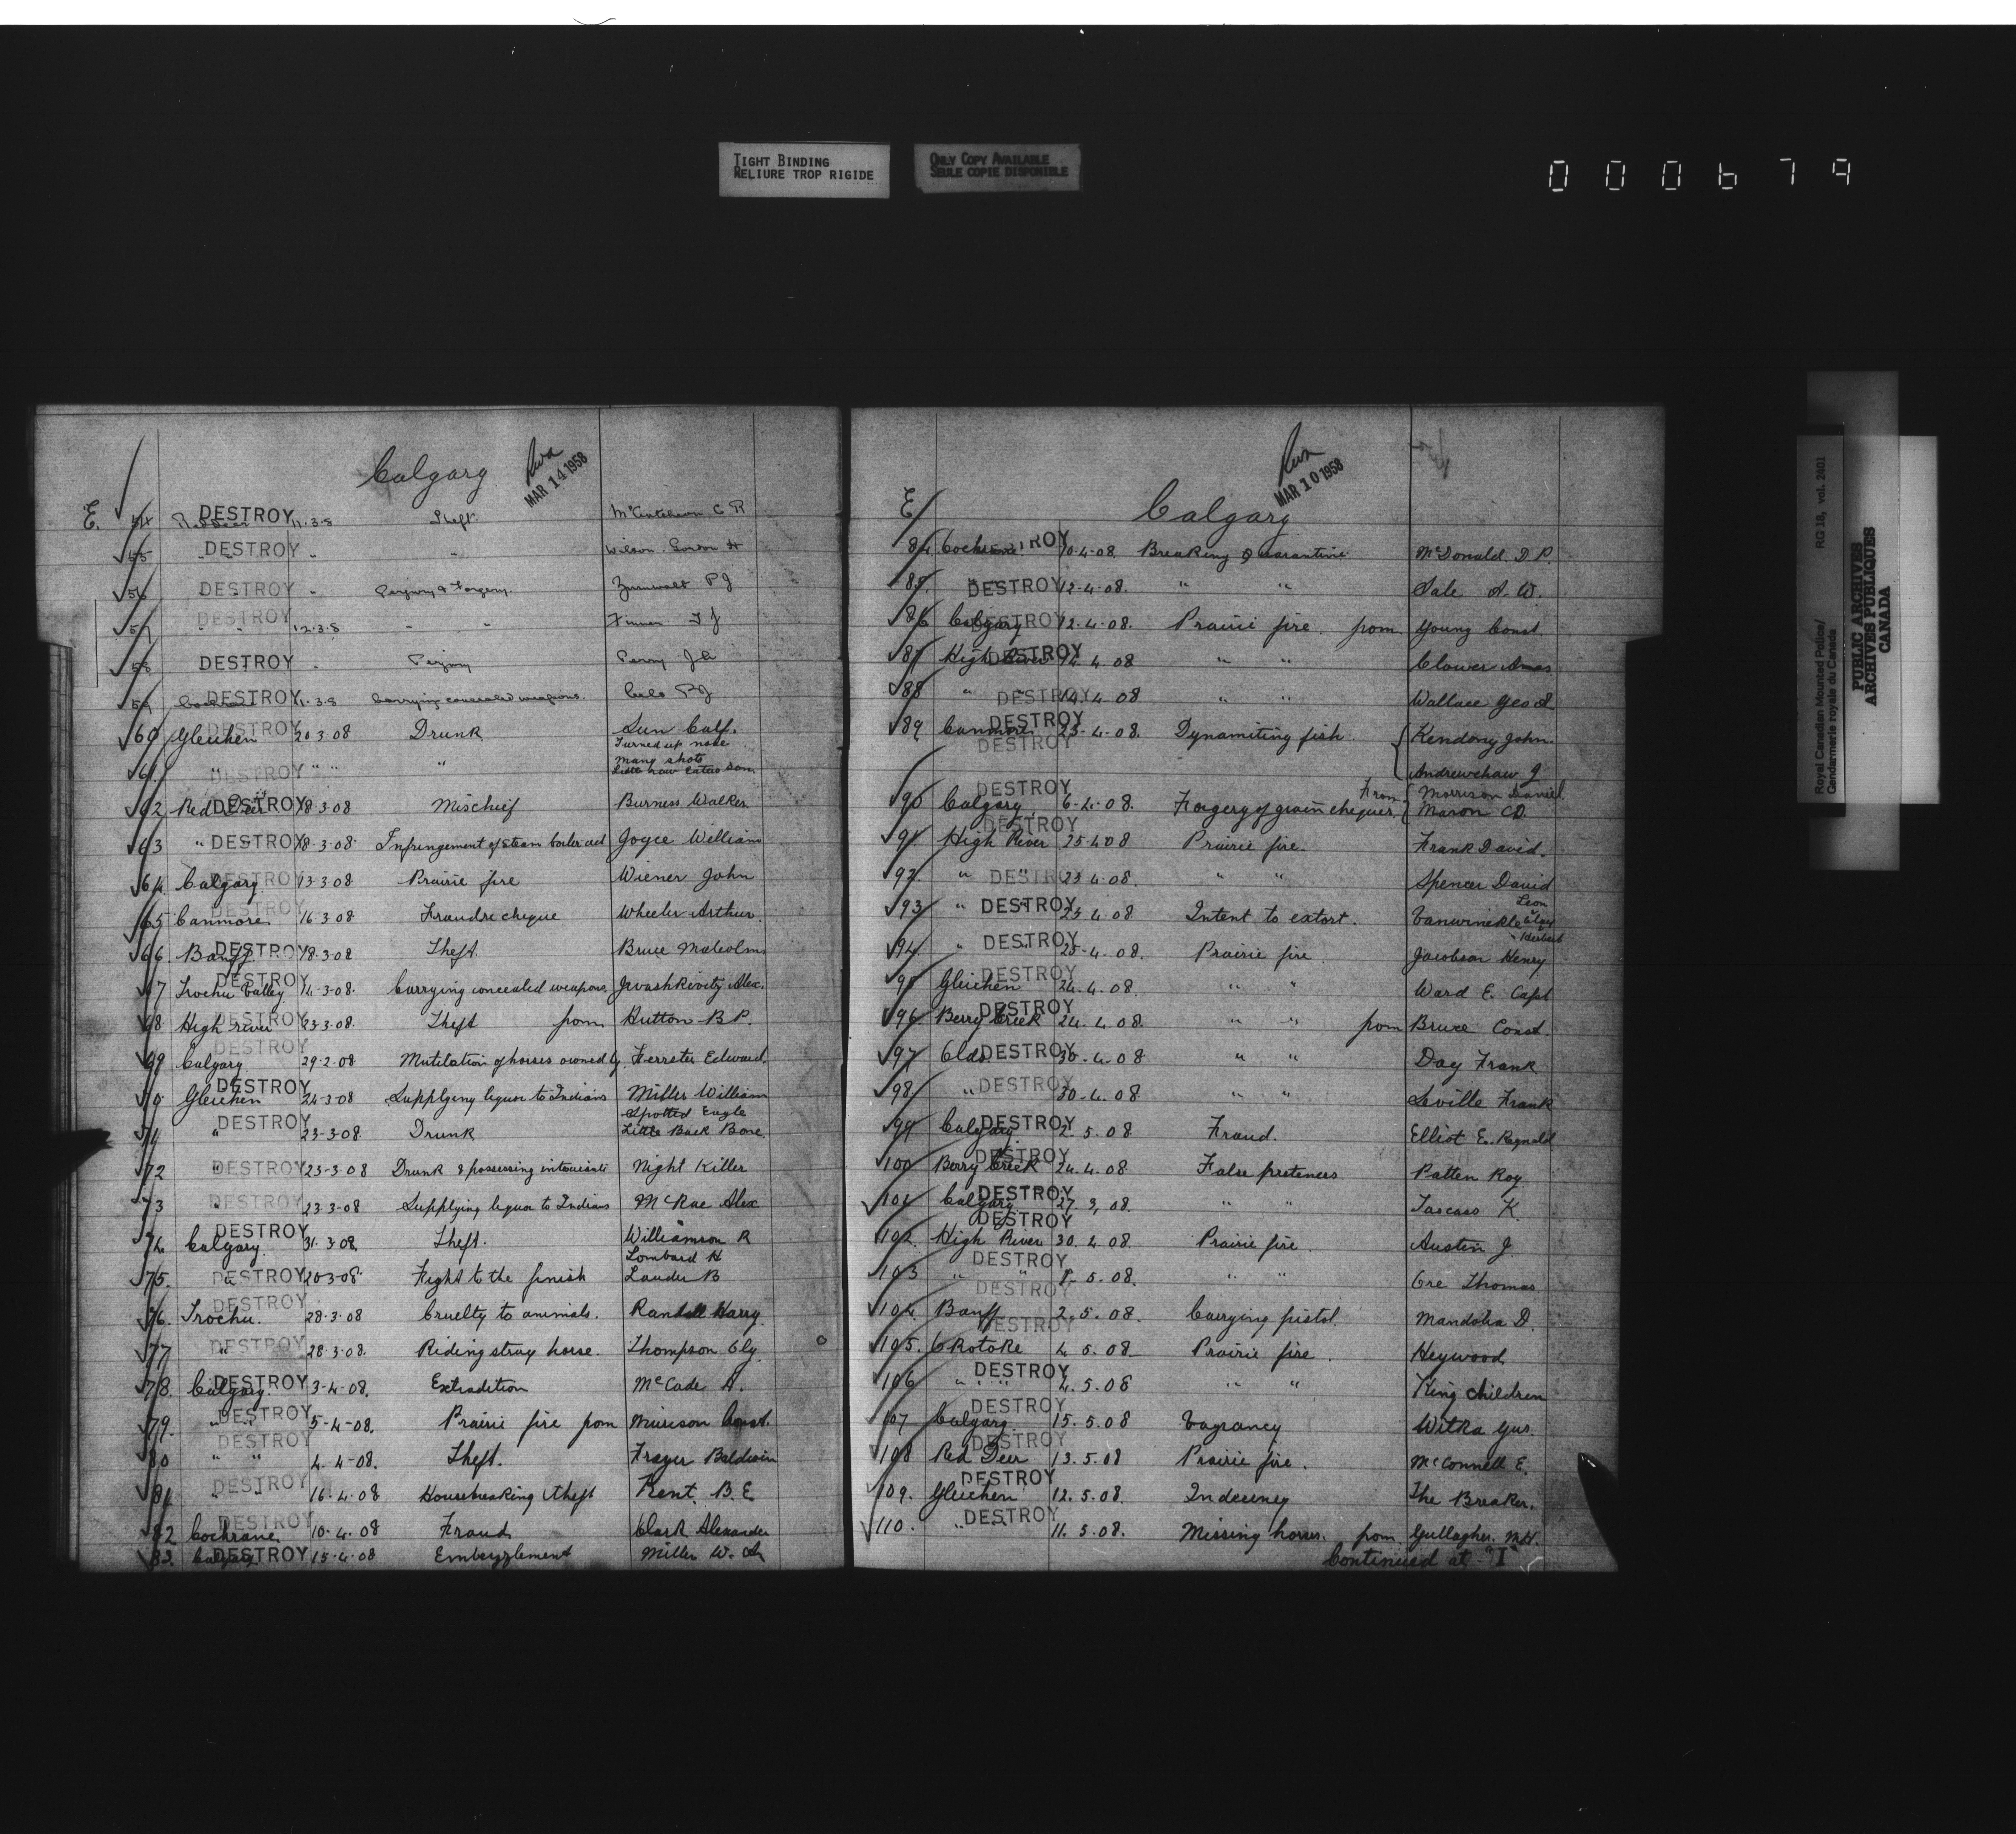 TIGHT BINDING
RELIURE TROP RIGIDE
ONLY COPY AVAILABLE
SEULE COPIE DISPONIBLE
000679
Calgary
MAR 14 1958
E. 54 Red Deer DESTROY 11.3.8 Theft. McCutcheon C R
55 " DESTROY " " " Wilson Gordon H
56 DESTROY " Perjury & Forgery. Zumwalt P J
57 " DESTROY " 12.3.8 " " Finnen F J
58 DESTROY " Perjury Perry J
59 Cochrane DESTROY 11.3.8 Carrying concealed weapons. P J
60 Gleichen DESTROY 20.3.08 Drunk Sun Calf.
Turned up nose
61. " DESTROY " " " Many shots
Little raw eater Sam
62 Red Deer DESTROY 18.3.08 Mischief Burness Walker
63 " DESTROY 18.3.08 Infringement of steam boiler act Joyce William
64. Calgary DESTROY 13.3.08 Prairie fire Wiener John
65 Canmore. DESTROY 16.3.08 Fraud re cheque Wheeler Arthur.
66 Banff DESTROY 18.3.08 Theft. Bruce Malcolm
67 Trochu Valley DESTROY 14-3-08. Carrying concealed weapons. Alex.
68 High river DESTROY 23.3.08. Theft from Hutton B P.
69 Calgary DESTROY 29.2.08 Mutilation of horses owned by Ferrster Edward.
70. Gleichen DESTROY 24-3-08 Supplying liquor to Indians Miller William
Spotted Eagle
71 " DESTROY 23-3-08. Drunk Little Back Bone.
72 " DESTROY 23-3-08 Drunk & possessing intoxicants Night Killer
73 " DESTROY 23.3-08 Supplying liquor to Indians McRae Alex
74. Calgary. DESTROY 31.3.08. Theft. Williamson R
Lombard H
75. " DESTROY 20.3.08. Fight to the finish Lauder B
76. Trochu. DESTROY 28.3.08 Cruelty to animals. Randall Harry.
77 " DESTROY 28.3.08. Riding stray horse. Thompson Oly.
78. Calgary. DESTROY 3-4-08. Extradition McCade A.
79. " " DESTROY 5-4-08. Prairie fire from Murison Const.
80 " " DESTROY 4.4-08. Theft. Frazer Baldwin
81 " " DESTROY 16.4.08 Housebreaking & theft Kent. B. E
82 Cochrane DESTROY 10.4.08 Fraud Clark Alexander
83. Calgary DESTROY 15.4.08 Embezzlement Miller W.
MAR 10 1958
E
Calgary
84 Cochrane DESTROY 10.4.08. Breaking Quarantine McDonald D P.
85. " DESTROY 12.4.08. " " Sale A. W.
86 Calgary DESTROY 12.4.08. Prairie fire. from Young Const.
87 High River DESTROY 14.4.08 " " Clower Amos
88 " DESTROY 14.4.08 " " Wallace Geo
89 Canmore DESTROY 23-4-08. Dynamiting fish. Kendory John.
DESTROY
Andrewchaw J
90 Calgary DESTROY 6-4-08. Forgery of grain cheques. From Morrison Daniel
Maron CD.
91 High River DESTROY 25.4.08 Prairie fire. Frank David.
92. " DESTROY 23.4.08. " " Spencer David
93 " DESTROY 23.4.08 Intent to extort. Vanwinkle Leon
" Herbert
94. " DESTROY 25-4.08. Prairie fire Jacobson Henry
95 Gleichen DESTROY 24.4.08. " " Ward E. Capt
96 Berry Creek DESTROY 24.4.08. " " from Bruce Const.
97 Olds DESTROY 30-4-08 " " Day Frank
98 " DESTROY 30.4.08 " " Leville Frank
99 Calgary DESTROY 2.5.08 Fraud. Elliot E. Reginald
100 Berry Creek DESTROY 24.4.08 False pretences Patten Roy.
101 Calgary DESTROY 27.3.08. " " Tascaso K.
DESTROY
102. High River 30.4.08. Prairie fire. Austin J.
103 " DESTROY 8.5.08. " " Ore Thomas
104. Banff DESTROY 2.5.08. Carrying pistol Mandolia D.
105. Okotoke DESTROY 4.5.08 Prairie fire. Heywood
106 " " DESTROY 4.5.08 " " King children
107 Calgary DESTROY 15.5.08 Vagrancy Witka Gus.
108 Red Deer DESTROY 13.5.08 Prairie fire. McConnell E.
109. Gleichen DESTROY 12.5.08. Indecency The Breaker.
110. " DESTROY 11.5.08. Missing horses. from Gullagher. M.H.
Continued at "I"
Royal Canadian Mounted Police/ RG 18, vol. 2401
Gendarmerie royale du Canada
PUBLIC ARCHIVES
ARCHIVES PUBLIQUES
CANADA